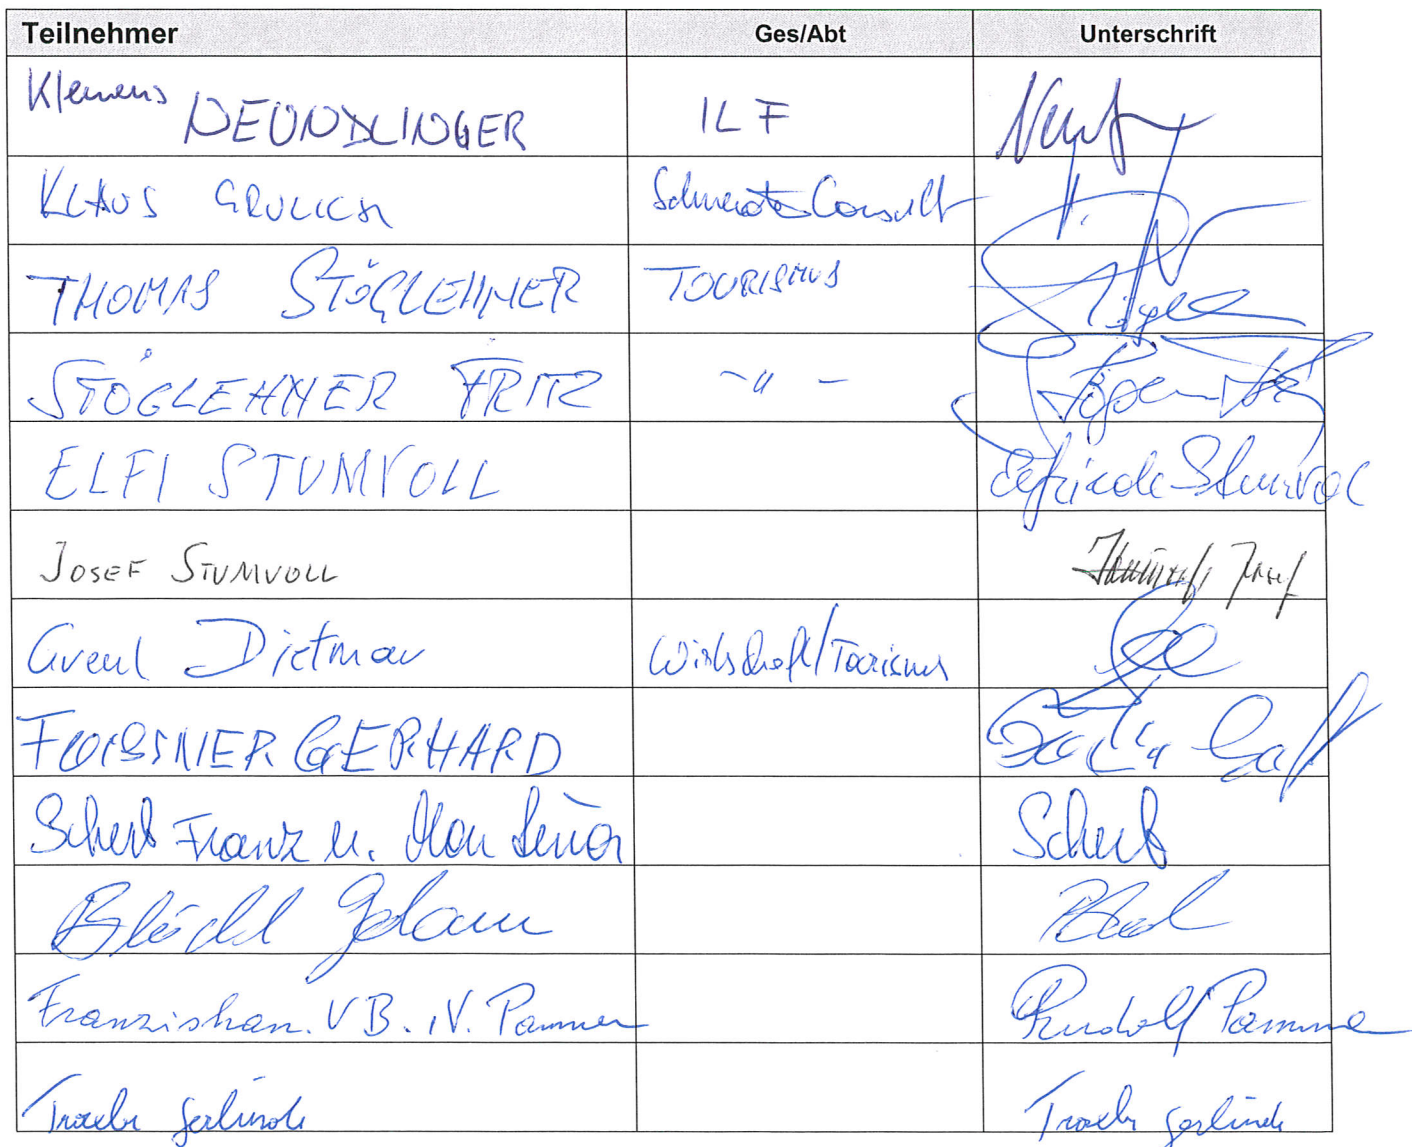 Teilnehmer Ges/Abt Unterschrift
Klemens NEUNDLINGER ILF
KLAUS GRULICH Consult
THOMAS STÖGLEHNER TOURISMUS
STÖGLEHNER FRITZ -"-
ELFI STUMVOLL Elfriede Stumvoll
JOSEF STUMVOLL Stumvoll Josef
Dietmar Wirtschaft/Tourismus
FOISSNER GERHARD
Scherb Franz u. Scherb
Blöchl Johann
Franziskan. VB. Pammer Rudolf Pammer
Gerlinde Gerlinde